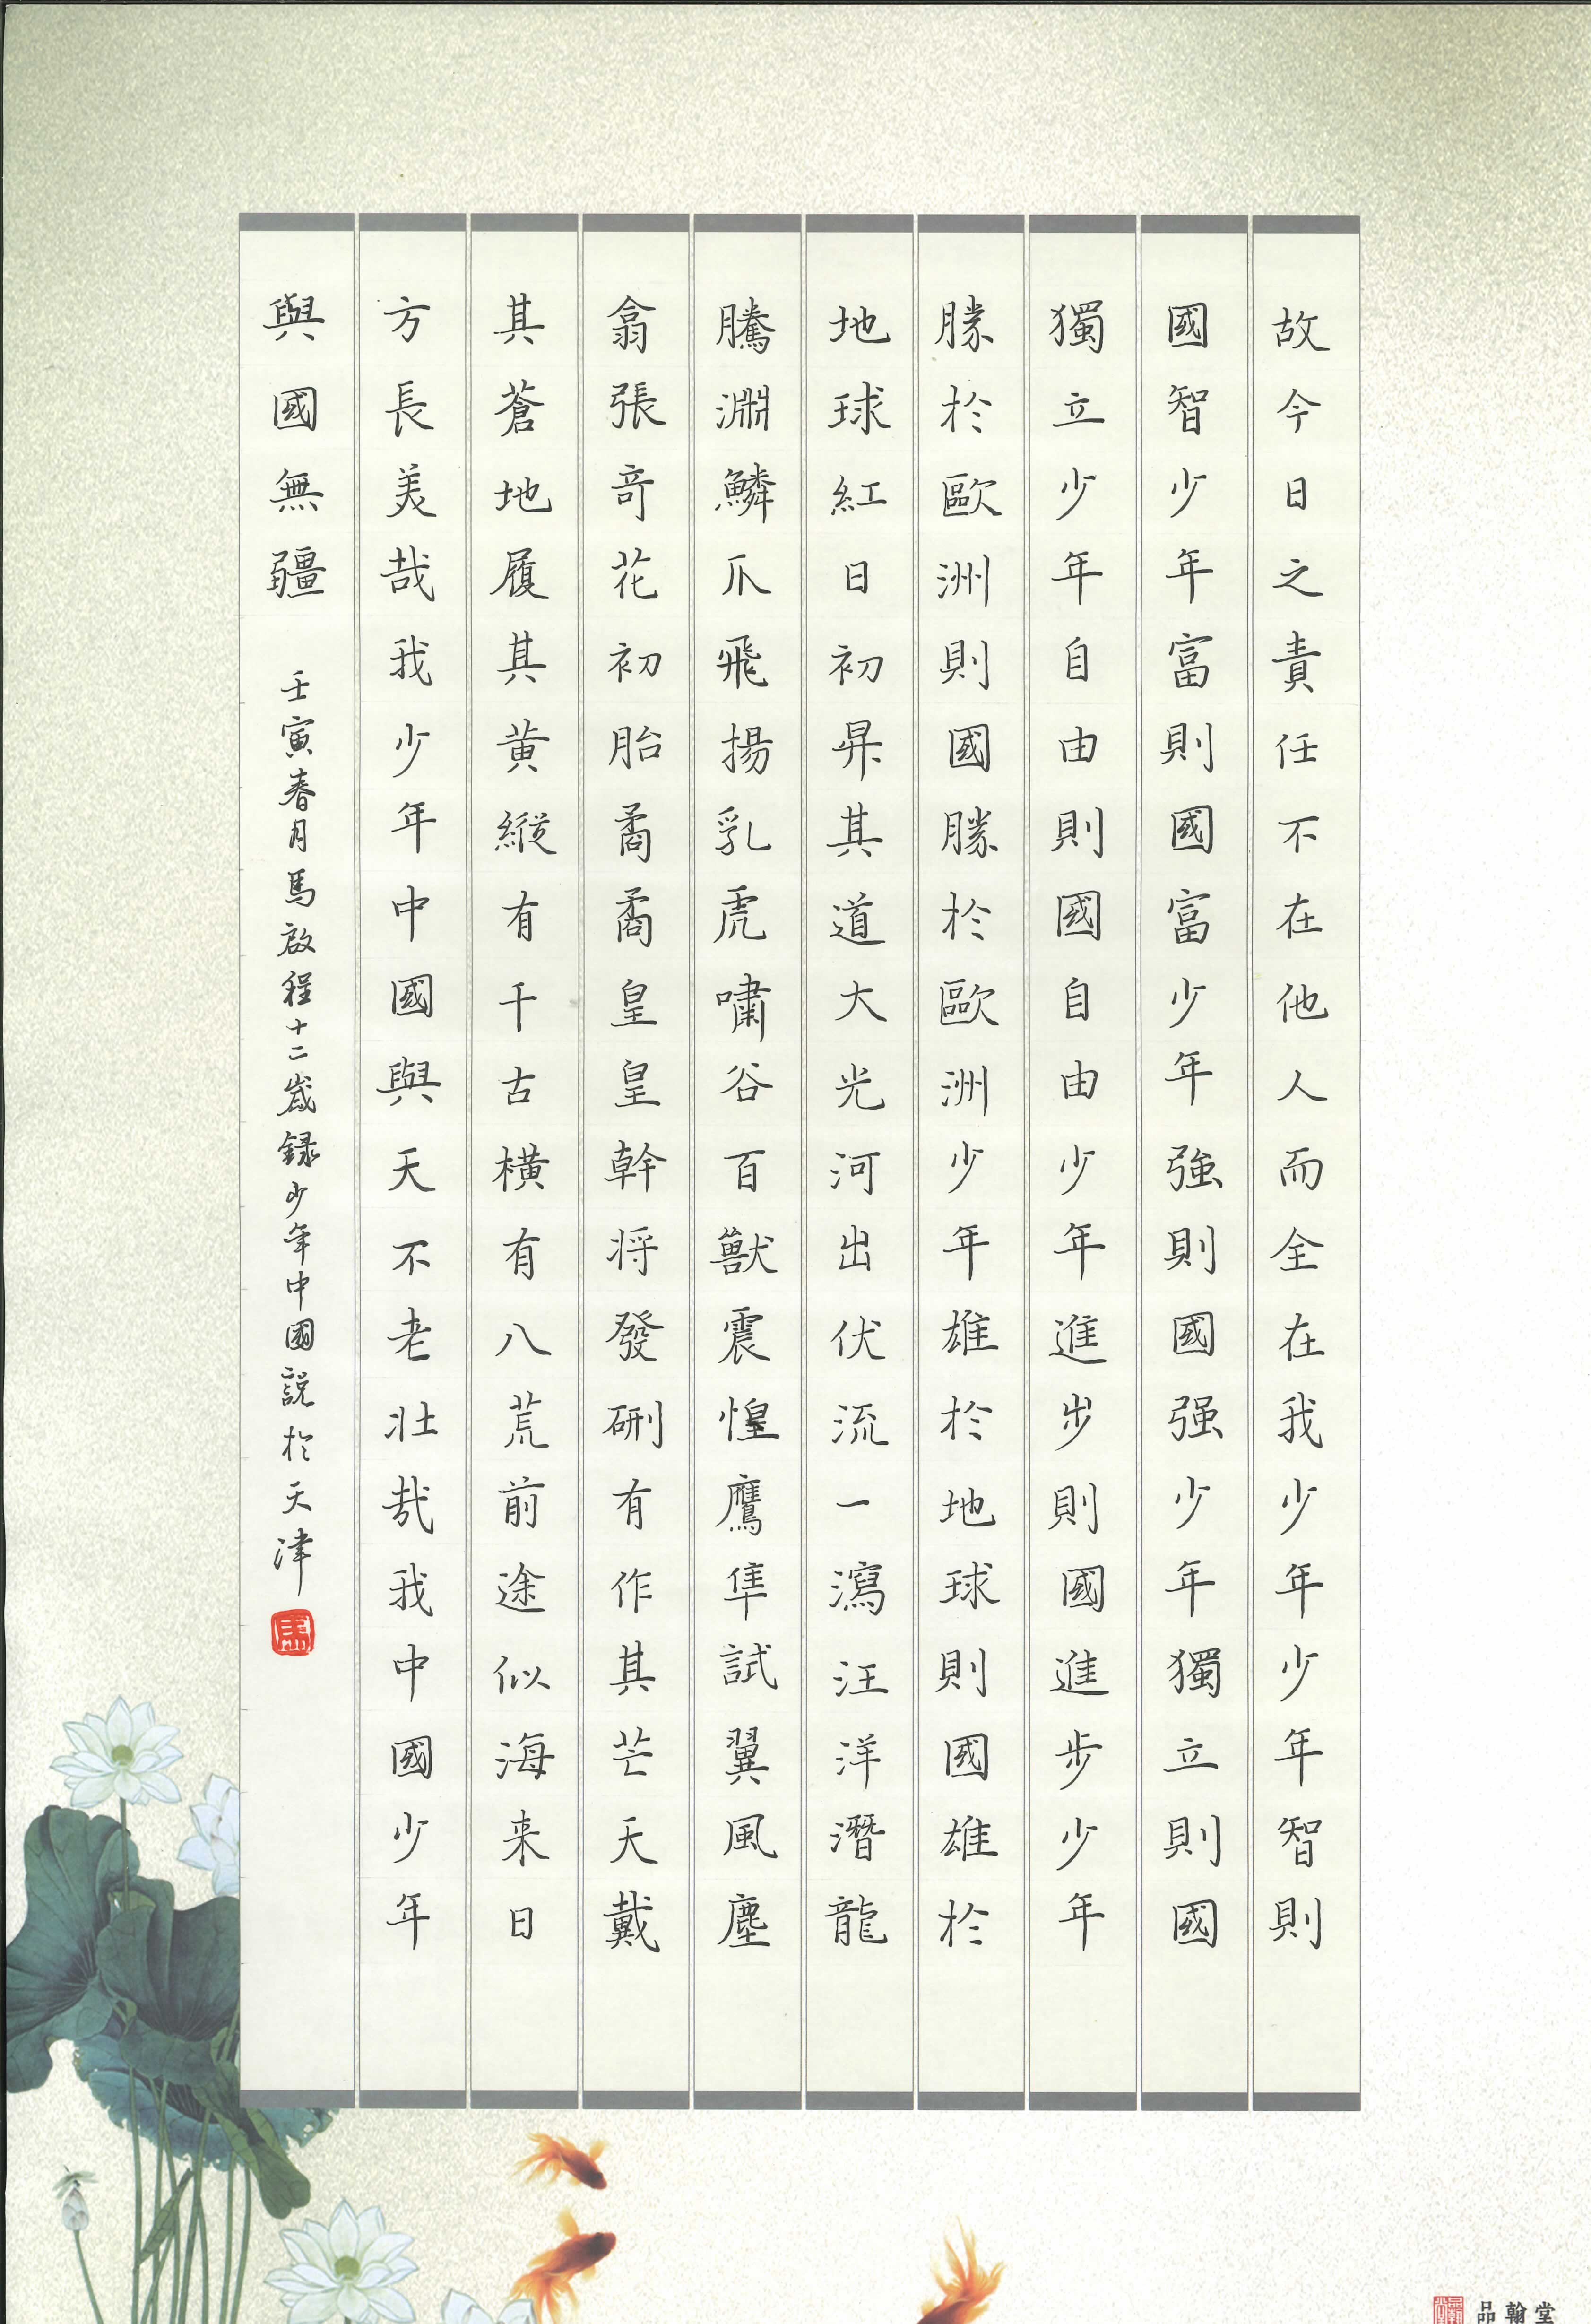 故今日之責任不在他人而全在我少年少年智則
國智少年富則國富少年強則國强少年獨立則國
獨立少年自由則國自由少年進步則國進步少年
勝於歐洲則國勝於歐洲少年雄於地球則國雄於
地球紅日初昇其道大光河出伏流一瀉汪洋潛龍
騰淵鱗爪飛揚乳虎嘯谷百獸震惶鷹隼試翼風塵
翕張奇花初胎矞矞皇皇幹將發硎有作其芒天戴
其蒼地履其黄縱有千古橫有八荒前途似海来日
方長美哉我少年中國與天不老壯哉我中國少年
與國無疆
壬寅春月馬啟程十二歲録少年中國説於天津
馬
品翰堂